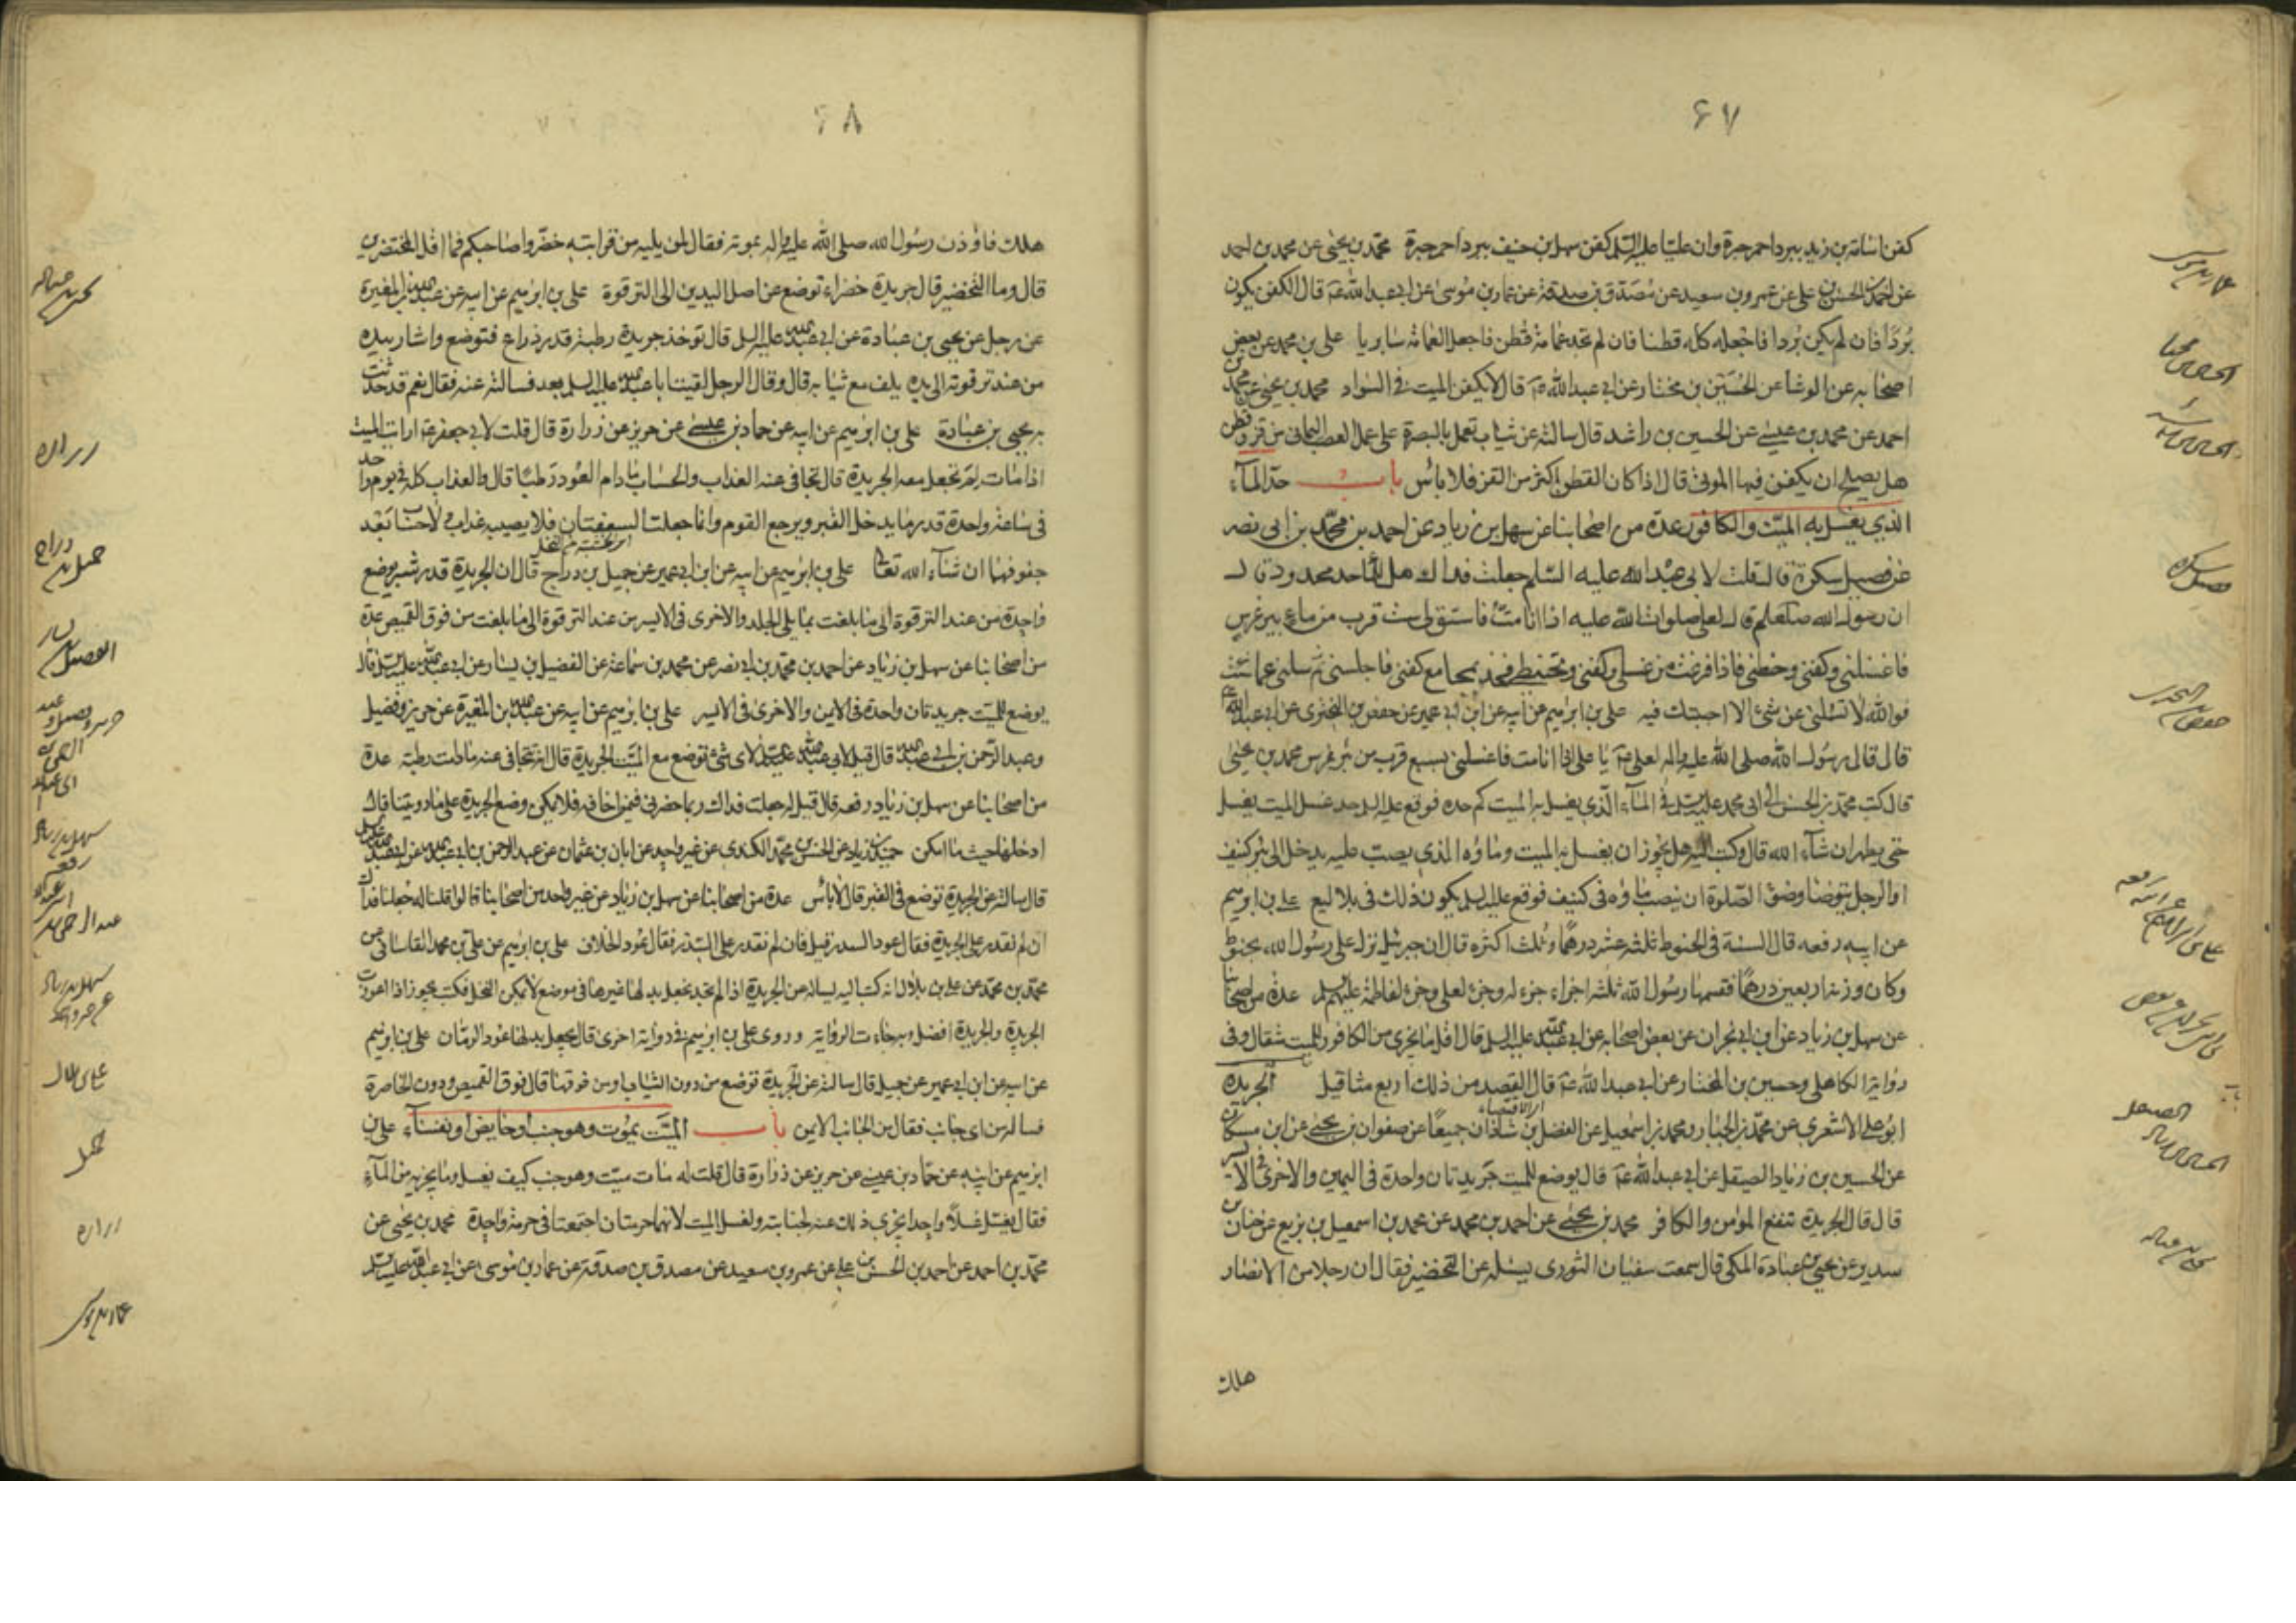 ٦٧
كفن اسامة بن زيد ببرد احمر حبرة وان عليا عليه السلم كفن سهل بن حنيف ببرد احمر حبرة محمد بن يحيى عن محمد بن احمد
عن احمد بن الحسن بن علي عن عمرو بن سعيد عن مصدق بن صدقة عن عمار بن موسى عن ابى عبد الله ع قال الكفن يكون
بردا فان لم يكن بردا فاجعله كله قطنا فان لم تجد عمامة قطن فاجعل العمامة سابريا على بن محمد عن بعض
اصحابه عن الوشا عن الحسين بن مختار عن ابى عبد الله ع قال لا يكفن الميت فى السواد محمد بن يحيى عن محمد بن
احمد عن محمد بن عيسى عن الحسين بن راشد قال سالته عن ثياب تعمل بالبصرة على عمل العصب اليمانى من قز وقطن
هل يصلح ان يكفن فيها الموتى قال اذا كان القطن اكثر من القز فلا بأس باب حد المآء
الذي يغسل به الميت والكافور عدة من اصحابنا عن سهل بن زياد عن احمد بن محمد بن ابى نصر
عن فضيل سكرة قال قلت لابى عبد الله عليه السلم جعلت فداك هل للماء حد محدود قال
ان رسول الله صلعم قال لعلى صلوات الله عليه اذا انا مت فاستق لى ست قرب من ماء بير غرس
فاغسلنى وكفنى وحنطنى فاذا فرغت من غسلى وكفنى وتحنيطى فخذ بمجامع كفنى فاجلسنى ثم سلنى عما شئت
فوالله لا تسئلنى عن شئ الا اجبتك فيه على بن ابرهيم عن ابيه عن ابن ابى عمير عن حفص بن البخترى عن ابى عبد الله ع
قال قال رسول الله صلى الله عليه واله لعلى ع يا على اذا انا مت فاغسلنى بسبع قرب من بئر غرس محمد بن يحيى
قال كتب محمد بن الحسن الى ابى محمد عليه السلم فى المآء الذي يغسل به الميت كم حده فوقع عليه السلم حد غسل الميت يغسل
حتى يطهر ان شآء الله قال وكتب اليه هل يجوز ان يغسل به الميت وماؤه الذي يصب عليه يدخل الى بئر كنيف
او الرجل يتوضا وضوء الصلوة ان ينصب ماؤه فى كنيف فوقع عليه السلم يكون ذلك فى بلاليع على بن ابرهيم
عن ابيه رفعه قال السنة فى الحنوط ثلثة عشر درهما وثلث اكثره قال ان جبرئيل نزل على رسول الله بحنوط
وكان وزنه اربعين درهما فقسمها رسول الله ثلثة اجزاء جزء له وجزء لعلى وجزء لفاطمة عليهم السلم عدة من اصحابنا
عن سهل بن زياد عن ابن ابى نجران عن بعض اصحابه عن ابى عبد الله عليه السلم قال اقل ما يجزى من الكافور للميت مثقال وفى
رواية الكاهلى وحسين بن المختار عن ابى عبد الله ع قال القصد من ذلك اربع مثاقيل الجريدة
ابو على الاشعرى عن محمد بن عبد الجبار ومحمد بن اسمعيل عن الفضل بن شاذان جميعا عن صفوان بن يحيى عن ابن مسكان
عن الحسين بن زياد الصيقل عن ابى عبد الله ع قال يوضع للميت جريدتان واحدة فى اليمين والاخرى فى الايسر
قال قال الجريدة تنفع المؤمن والكافر محمد بن يحيى عن احمد بن محمد عن محمد بن اسمعيل بن بزيع عن حنان بن
سدير عن يحيى بن عبادة المكى قال سمعت سفيان الثورى يسئله عن التخضير فقال ان رجلا من الانصار
هلك
عمار بن موسى
فضيل سكرة
حفص بن البخترى
على بن ابراهيم رفعه
الصيقل
٦٨
هلك فاوذن رسول الله صلى الله عليه واله بموته فقال لمن يليه من قرابته خضروا صاحبكم فما اقل المخضرين
قال وما التخضير قال جريدة خضراء توضع عن اصل اليدين الى الترقوة على بن ابرهيم عن ابيه عن عبد الله بن المغيرة
عن رجل عن يحيى بن عبادة عن ابى عبد الله عليه السلم قال توخذ جريدة رطبة قدر ذراع فتوضع واشار بيده
من عند ترقوته الى يده يلف مع ثيابه قال وقال الرجل لقيت ابا عبد الله عليه السلم بعد فسالته عنه فقال نعم قد حدثت
به يحيى بن عبادة على بن ابرهيم عن ابيه عن حماد بن عيسى عن حريز عن زرارة قال قلت لابى جعفر ع ارايت الميت
اذا مات لم تجعل معه الجريدة قال تجافى عنه العذاب والحساب مادام العود رطبا قال والعذاب كله فى يوم واحد
فى ساعة واحدة قدر ما يدخل القبر ويرجع القوم وانما جعلت السعفتان فلا يصيبه عذاب ولا حساب بعد
جفوفهما ان شآء الله تعالى على بن ابرهيم عن ابيه عن ابن ابى عمير عن جميل بن دراج قال ان الجريدة قدر شبر يوضع
واحدة من عند الترقوة الى ما بلغت مما يلى الجلد والاخرى فى الايسر من عند الترقوة الى ما بلغت من فوق القميص عدة
من اصحابنا عن سهل بن زياد عن احمد بن محمد بن ابى نصر عن محمد بن سماعة عن الفضيل بن يسار عن ابى عبد الله عليه السلم قال
يوضع للميت جريدتان واحدة فى الايمن والاخرى فى الايسر على بن ابرهيم عن ابيه عن عبد الله بن المغيرة عن حريز وفضيل
وعبد الرحمن بن ابى عبد الله قال قيل لابى عبد الله عليه السلم لاى شئ توضع مع الميت الجريدة قال انه يتجافى عنه مادامت رطبة عدة
من اصحابنا عن سهل بن زياد رفعه قال قيل له جعلت فداك ربما حضرنى فمن اخافه فلا يمكن وضع الجريدة على ما رويتنا قال
ادخلها حيث ما امكن حميد بن زياد عن الحسن بن محمد الكندى عن غير واحد عن ابان بن عثمان عن عبد الرحمن بن ابى عبد الله عن ابى عبد الله عليه السلم
قال سالته عن الجريدة توضع فى القبر قال لا بأس عدة من اصحابنا عن سهل بن زياد عن غير واحد من اصحابنا قالوا قلنا له جعلنا فداك
ان لم نقدر على الجريدة فقال عود السدر قيل فان لم نقدر على السدر فقال عود الخلاف على بن ابرهيم عن على بن محمد القاسانى عن
محمد بن محمد عن على بن بلال انه كتب اليه يساله عن الجريدة اذا لم نجد يجعل بدلها غيرها فى موضع لا يمكن النخل فكتب يجوز اذا اعوزت
الجريدة والجريدة افضل وبه جاءت الرواية وروى على بن ابرهيم فى رواية اخرى قال يجعل بدلها عود الرمان على بن ابرهيم
عن ابيه عن ابن ابى عمير عن جميل قال سالته عن الجريدة توضع من دون الثياب او من فوقها قال فوق القميص ودون الخاصرة
فسالته من اى جانب فقال من الجانب الايمن باب الميت يموت وهو جنب او حايض او نفسآء على بن
ابرهيم عن ابيه عن حماد بن عيسى عن حريز عن زرارة قال قلت له مات ميت وهو جنب كيف يغسل وما يجزيه من المآء
فقال يغسل غسلا واحدا يجزى ذلك عنه لجنابته ولغسل الميت لانهما حرمتان اجتمعتا فى حرمة واحدة محمد بن يحيى عن
محمد بن احمد عن احمد بن الحسن بن على عن عمرو بن سعيد عن مصدق بن صدقة عن عمار بن موسى عن ابى عبد الله عليه السلم
زراره
جميل بن دراج
الفضيل بن يسار
سهل بن زياد رفعه
على بن بلال
جميل
زراره
عمار بن موسى